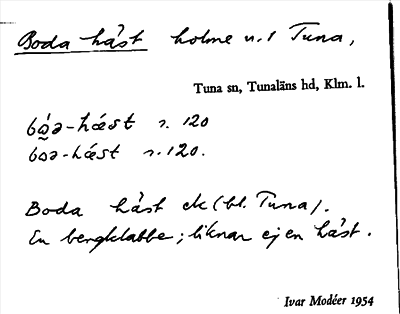 Boda håst holme n. 1 Tuna,
Tuna sn, Tunaläns hd, Klm. l.
-hǽst s. 120
-hǽst s. 120.
Boda håst ek (bl. Tuna).
En bergklabbe; liknar ej en håst.
Ivar Modéer 1954